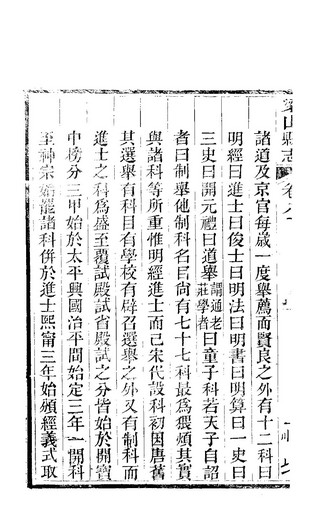 梁山縣志 卷八
諸道及京官每歲一度舉薦而賢良之外有十二科曰
明經曰進士曰俊士曰明法曰明書曰明算曰一史曰
三史曰開元禮曰道舉謂通老莊學者曰童子科若天子自詔
者曰制舉他制科名目尚有七十七科最為猥煩其實
與諸科等所重惟明經進士而已宋代設科初因唐舊
其選舉有科目有學校有辟召選舉之外又有制科而
進士之科為盛至覆試殿試省殿試之分皆始於開寶
中榜分三甲始於太平興國治平間始定三年一開科
至神宗始罷諸科併於進士熙甯三年始頒經義式取